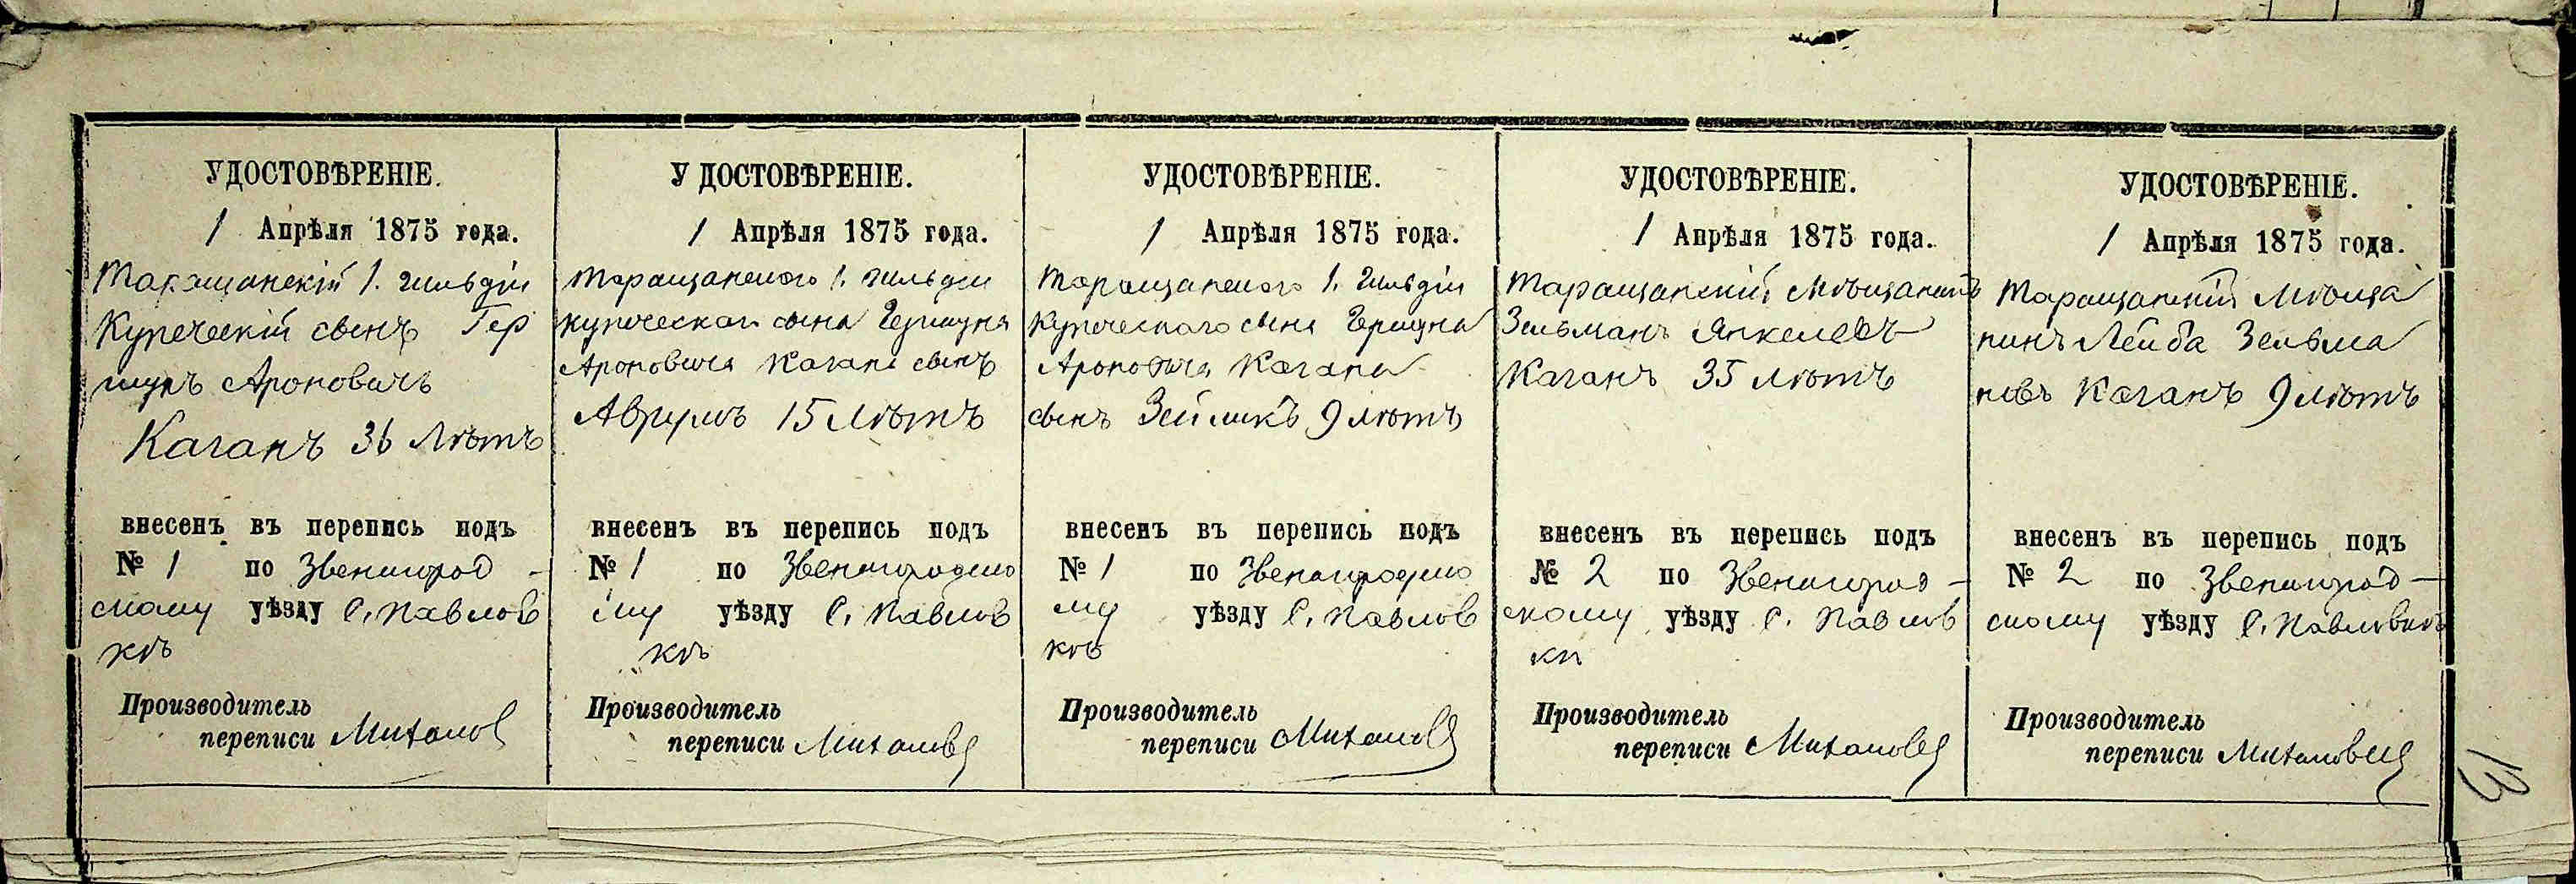 УДОСТОВѢРЕНІЕ.
1 Апрѣля 1875 года.
Таращанскій 1. гильдіи
Купеческій сынъ Гер
шунъ Ароновичъ
Каганъ 36 Лѣтъ
внесенъ въ перепись подъ
№ 1 по Звенигород-
скому уѣзду С. Павлов
кѣ
Производитель
переписи
УДОСТОВѢРЕНІЕ.
1 Апрѣля 1875 года.
Таращанского 1. гильдіи
купеческаго сына Гершуна
Ароновича Кагана сынъ
Аврумъ 15 Лѣтъ
внесенъ въ перепись подъ
№ 1 по Звенигородско
му уѣзду С. Павлов
кѣ
Производитель
переписи
УДОСТОВѢРЕНІЕ.
1 Апрѣля 1875 года.
Таращанского 1. Гильдіи
Купеческаго сына Гершуна
Ароновича Кагана
сынъ Зейликъ 9 лѣтъ
внесенъ въ перепись подъ
№ 1 по Звенигородско
му уѣзду С. Павлов
кѣ
Производитель
переписи
УДОСТОВѢРЕНІЕ.
1 Апрѣля 1875 года.
Таращанскій Мѣщанинъ
Зельманъ Янкелевъ
Каганъ 35 лѣтъ
внесенъ въ перепись подъ
№ 2 по Звенигород-
скому уѣзду С. Павлов
ки
Производитель
переписи
УДОСТОВѢРЕНІЕ.
1 Апрѣля 1875 года.
Таращанскій Мѣща
нинъ Лейба Зельма
новъ Каганъ 9 лѣтъ
внесенъ въ перепись подъ
№ 2 по Звенигород-
скому уѣзду С. Павловкѣ
Производитель
переписи
13